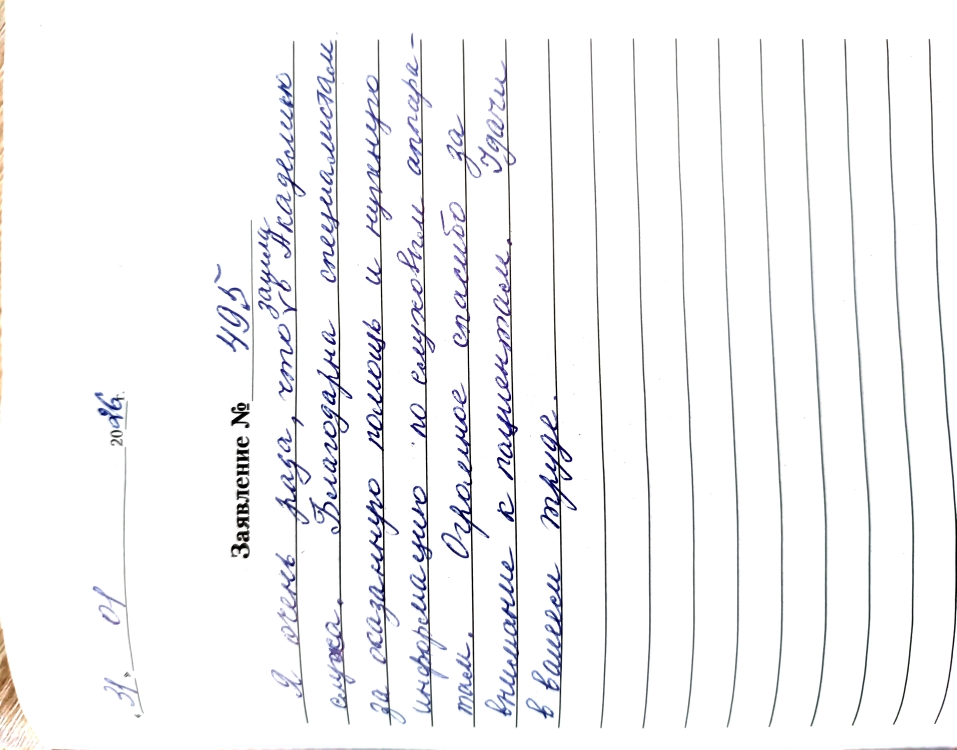 „31" 01 2026г.
Заявление № 495
зашла
Я очень рада, что v в Академию
слуха. Благодарна специалистам
за оказанную помощь и нужную
информацию по слуховым аппара-
там. Огромное спасибо за
внимание к пациентам. Удачи
в вашем труде.